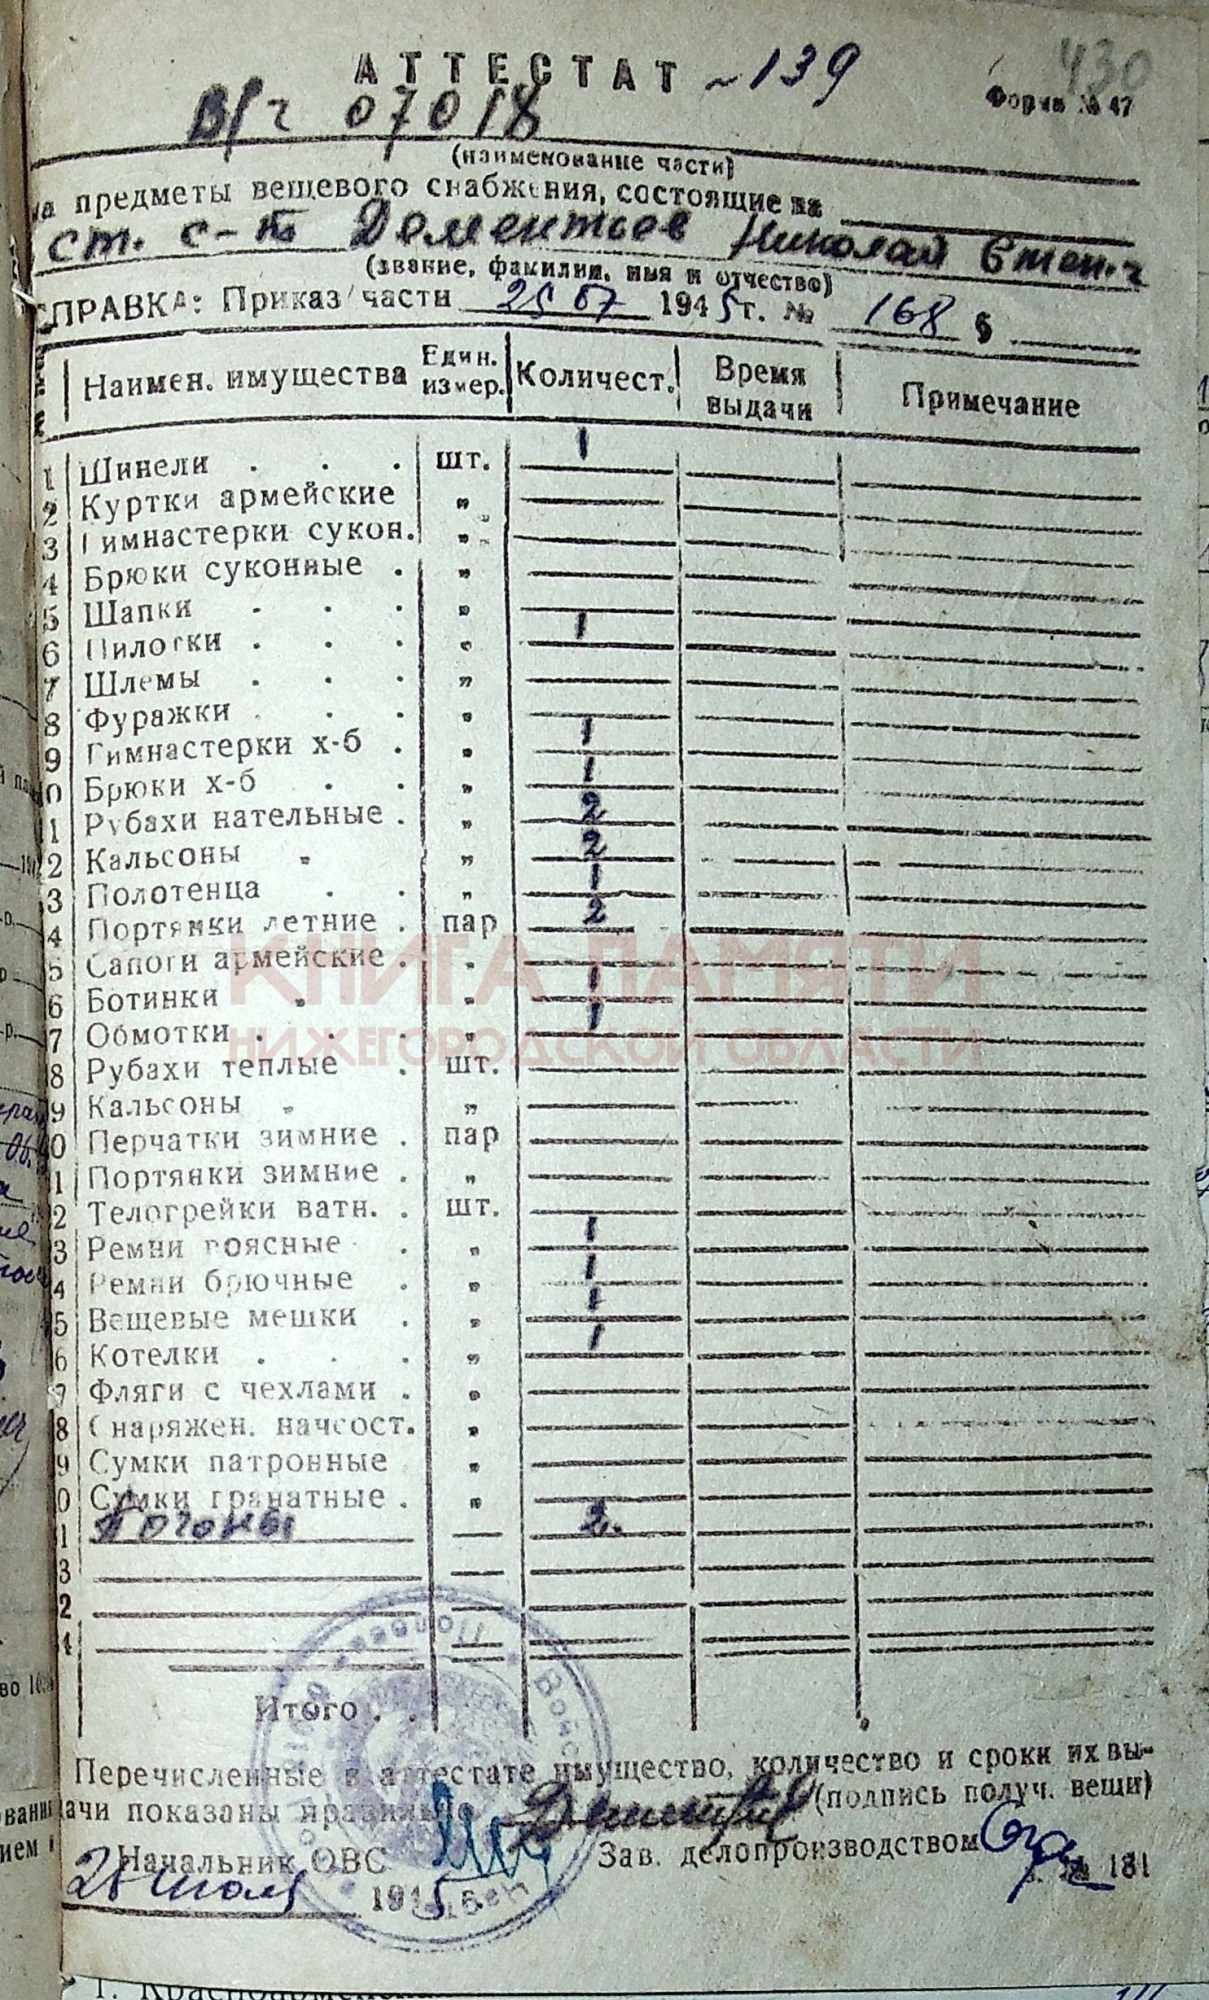 430
АТТЕСТАТ ~ 139
Форма № 47
В/ч 07018
(наименование части)
на предметы вещевого снабжения, состоящие на
ст. с-т Дементьев Николай Степ.ч
(звание, фамилия, имя и отчество)
СПРАВКА: Приказ части 25 07 1945 г. № 168 §
Наимен. имущества Един. измер. Количест. Время выдачи Примечание
1 Шинели . . . шт. 1
2 Куртки армейские „
3 Гимнастерки сукон. „
4 Брюки суконные . „
5 Шапки . . . „
6 Пилотки . . . „ 1
7 Шлемы . . . „
8 Фуражки . . . „
9 Гимнастерки х-б . „ 1
0 Брюки х-б . . „ 1
1 Рубахи нательные . „ 2
2 Кальсоны „ „ 2
3 Полотенца . . „ 1
4 Портянки летние . пар 2
5 Сапоги армейские . „
6 Ботинки „ „ 1
7 Обмотки . . . „ 1
8 Рубахи теплые . шт.
9 Кальсоны „ „
0 Перчатки зимние . пар
1 Портянки зимние . „
2 Телогрейки ватн. . шт.
3 Ремни поясные . „ 1
4 Ремни брючные . „ 1
5 Вещевые мешки . „ 1
6 Котелки . . . „ 1
7 Фляги с чехлами . „
8 Снаряжен. начсост. „
9 Сумки патронные „
0 Сумки гранатные . „
1 Погоны — 2.
3
2
4
Итого . .
Перечисленные в аттестате имущество, количество и сроки их вы-
дачи показаны правильно (подпись получ. вещи)
Начальник ОВС Зав. делопроизводством
26 июля 1945 г. 131
КНИГА ПАМЯТИ
НИЖЕГОРОДСКОЙ ОБЛАСТИ